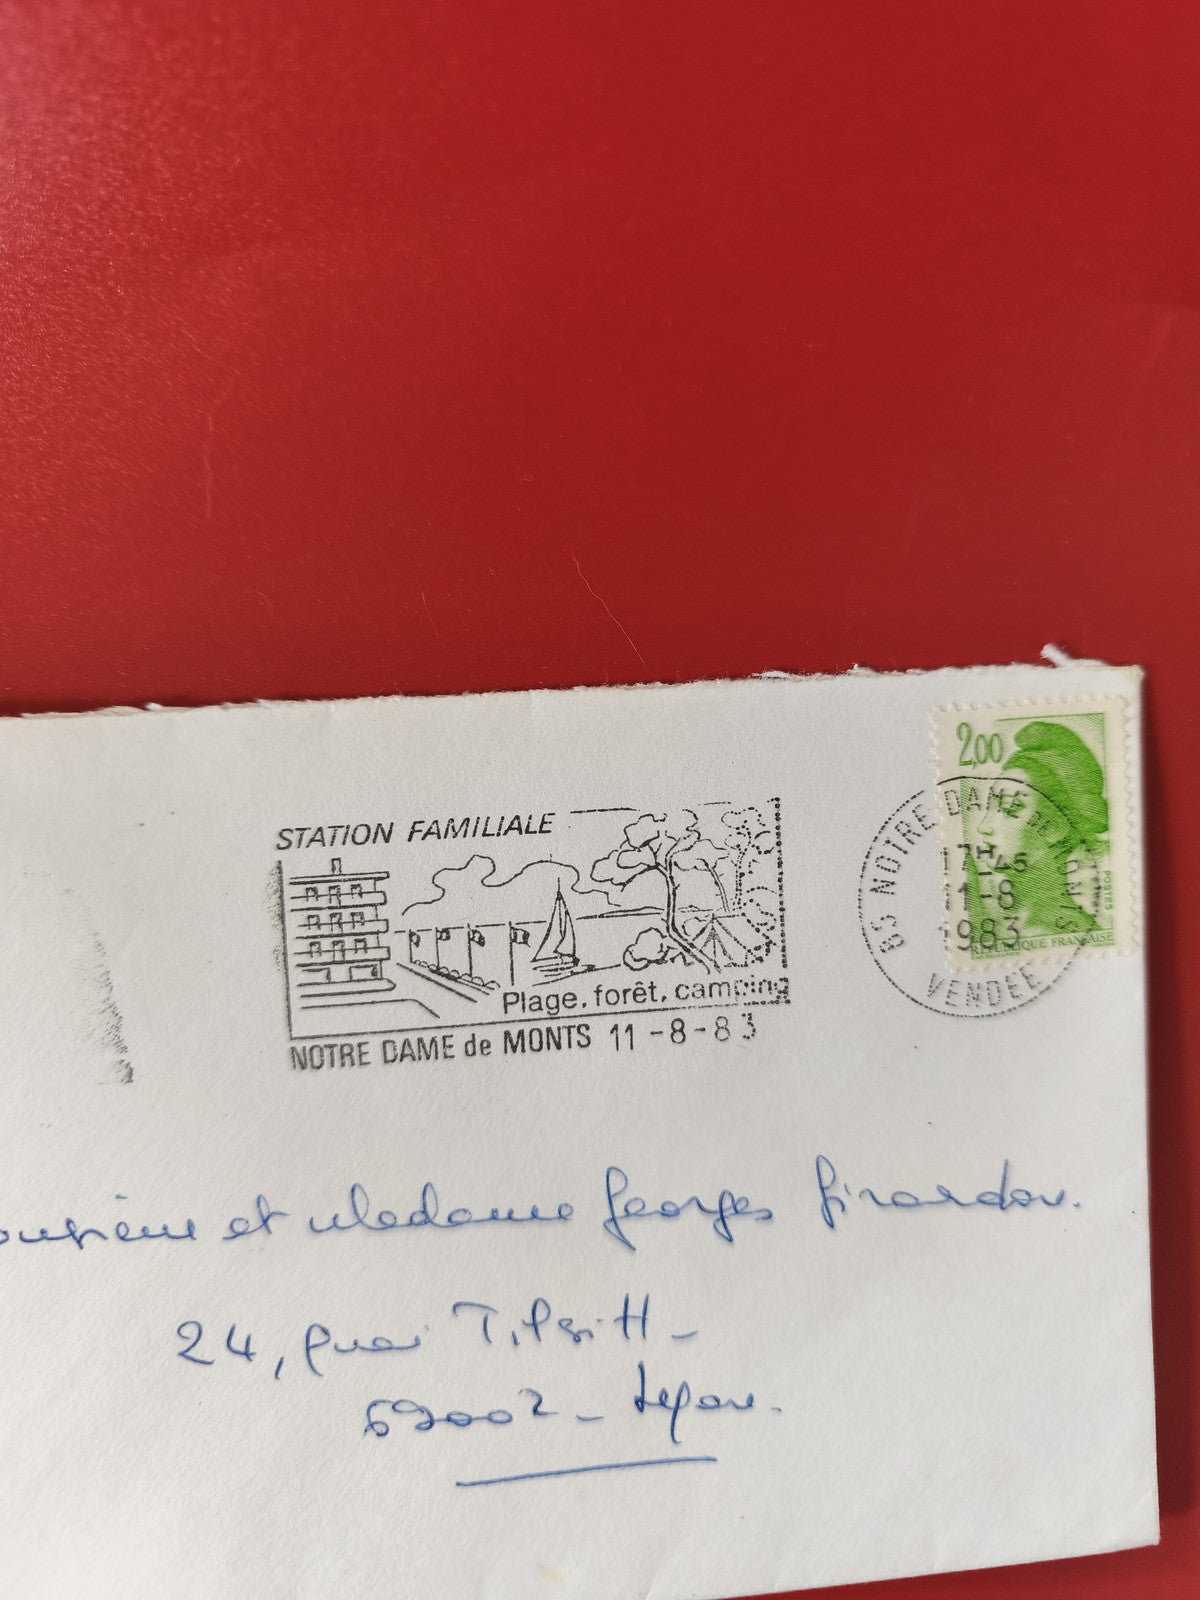 STATION FAMILIALE
Plage, forêt, camping
NOTRE DAME de MONTS 11-8-83
2,00
POSTES
RÉPUBLIQUE FRANÇAISE
85 NOTRE DAME DE MONTS
17H45
11-8
1983
VENDEE
et Madame Georges Girardon.
24, quai Tilsitt -
69002 - Lyon.